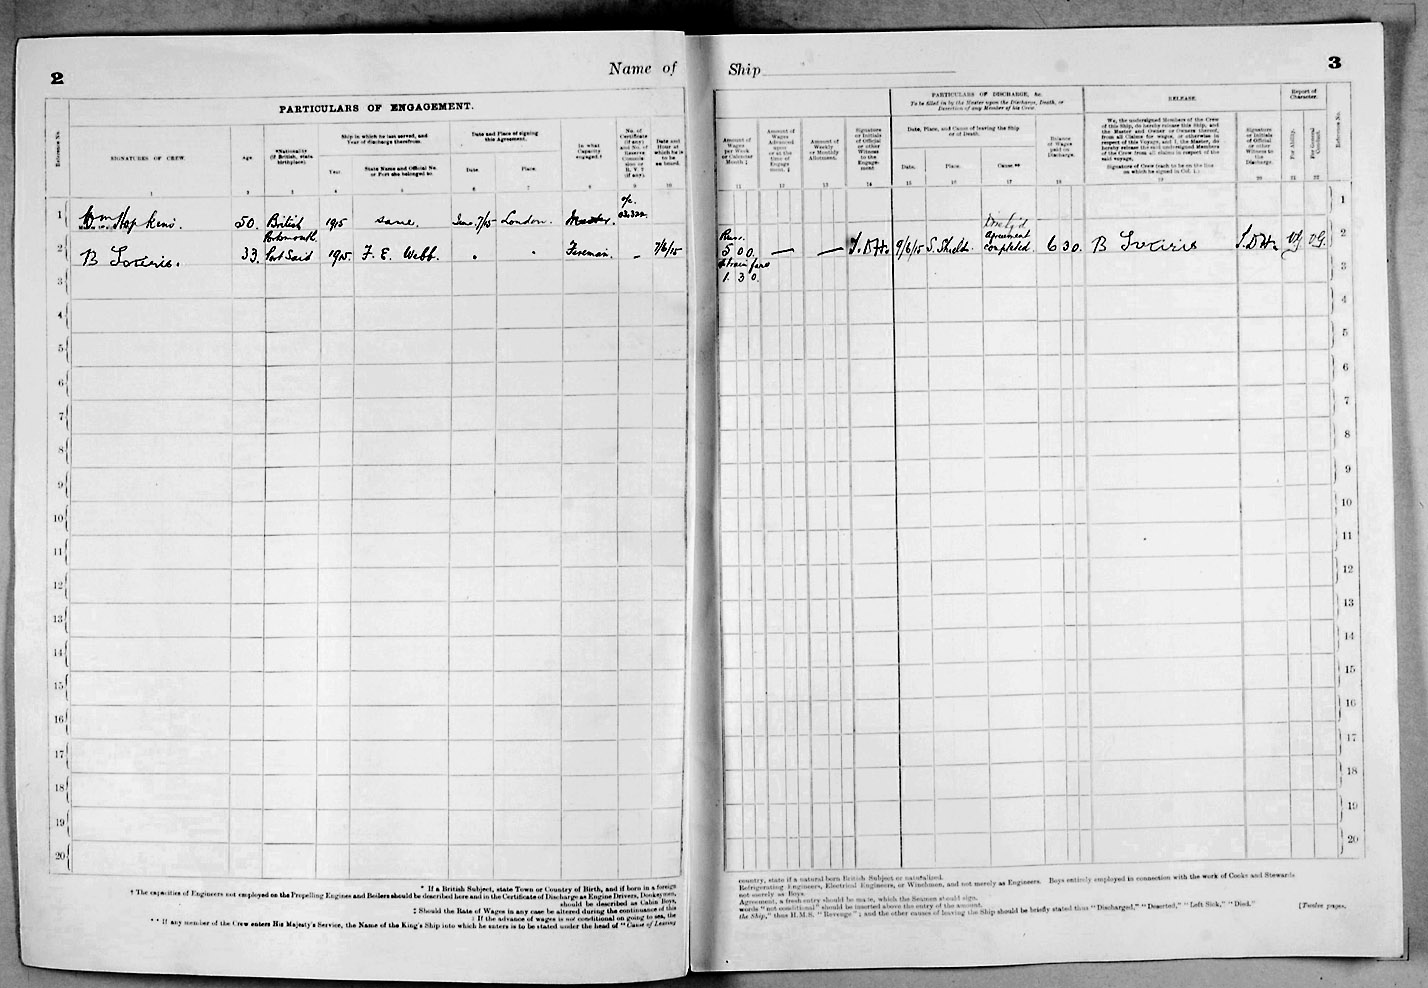 2
Name of
Ship
3
PARTICULARS OF ENGAGEMENT.
Reference No.
SIGNATURES OF CREW.
Age.
*Nationality
(If British, state
birthplace).
Ship in which he last served, and
Year of discharge therefrom.
Year.
State Name and Official No.
or Port she belonged to.
Date and Place of signing
this Agreement.
Date.
Place.
In what
Capacity
engaged.†
No. of
Certificate
(if any)
and No. of
Reserve
Commis-
sion or
R.V. 2
(if any).
Date and
Hour at
which he is
to be
on board.
1 2 3 4 5 6 7 8 9 10
1 Wm Hopkins. 50. British Portsmouth 1915 same. June 7/15 London. Master. 03322
2 B Soteris. 33. Port Said 1915 F. E. Webb. " " Fireman. – 7/6/15
3
4
5
6
7
8
9
10
11
12
13
14
15
16
17
18
19
20
* If a British Subject, state Town or Country of Birth, and if born in a foreign
† The capacities of Engineers not employed on the Propelling Engines and Boilers should be described here and in the Certificate of Discharge as Engine Drivers, Donkeymen,
should be described as Cabin Boys,
‡ Should the Rate of Wages in any case be altered during the continuance of this
‡ If the advance of wages is not conditional on going to sea, the
** If any member of the Crew enters His Majesty's Service, the Name of the King's Ship into which he enters is to be stated under the head of "Cause of Leaving
Amount of
Wages
per Week
or Calendar
Month ‡
Amount of
Wages
Advanced
upon
or at the
time of
Engage
ment. ‡
Amount of
Weekly
or Monthly
Allotment.
Signature
or Initials
of Official
or other
Witness
to the
Engage-
ment
PARTICULARS OF DISCHARGE, &c.
To be filled in by the Master upon the Discharge, Death, or
Desertion of any Member of his Crew.
Date, Place, and Cause of leaving the Ship
or of Death.
Date.
Place.
Cause.**
Balance
of Wages
paid on
Discharge.
RELEASE.
We, the undersigned Members of the Crew
of this Ship, do hereby release this Ship, and
the Master and Owner or Owners thereof,
from all Claims for wages, or otherwise in
respect of this Voyage, and I, the Master, do
hereby release the said undersigned Members
of the Crew from all claims in respect of the
said voyage.
Signature of Crew (each to be on the line
on which he signed in Col. 1.)
Signature
or Initials
of Official
or other
Witness to
the
Discharge.
Report of
Character.
For Ability.
For General
Conduct.
Reference No.
11 12 13 14 15 16 17 18 19 20 21 22
1
Run.
5 0 0. — — 9/6/15 S. Shields. Agreement completed. 6 3 0. B Soteris VG VG. 2
& train fare
1. 3 0.
3
4
5
6
7
8
9
10
11
12
13
14
15
16
17
18
19
20
country, state if a natural born British Subject or naturalised.
Refrigerating Engineers, Electrical Engineers, or Winchmen, and not merely as Engineers. Boys entirely employed in connection with the work of Cooks and Stewards
not merely as Boys.
Agreement, a fresh entry should be made, which the Seamen should sign.
words "not conditional" should be inserted above the entry of the amount.
the Ship," thus H.M.S. "Revenge"; and the other causes of leaving the Ship should be briefly stated thus "Discharged," "Deserted," "Left Sick," "Died."
[Twelve pages.